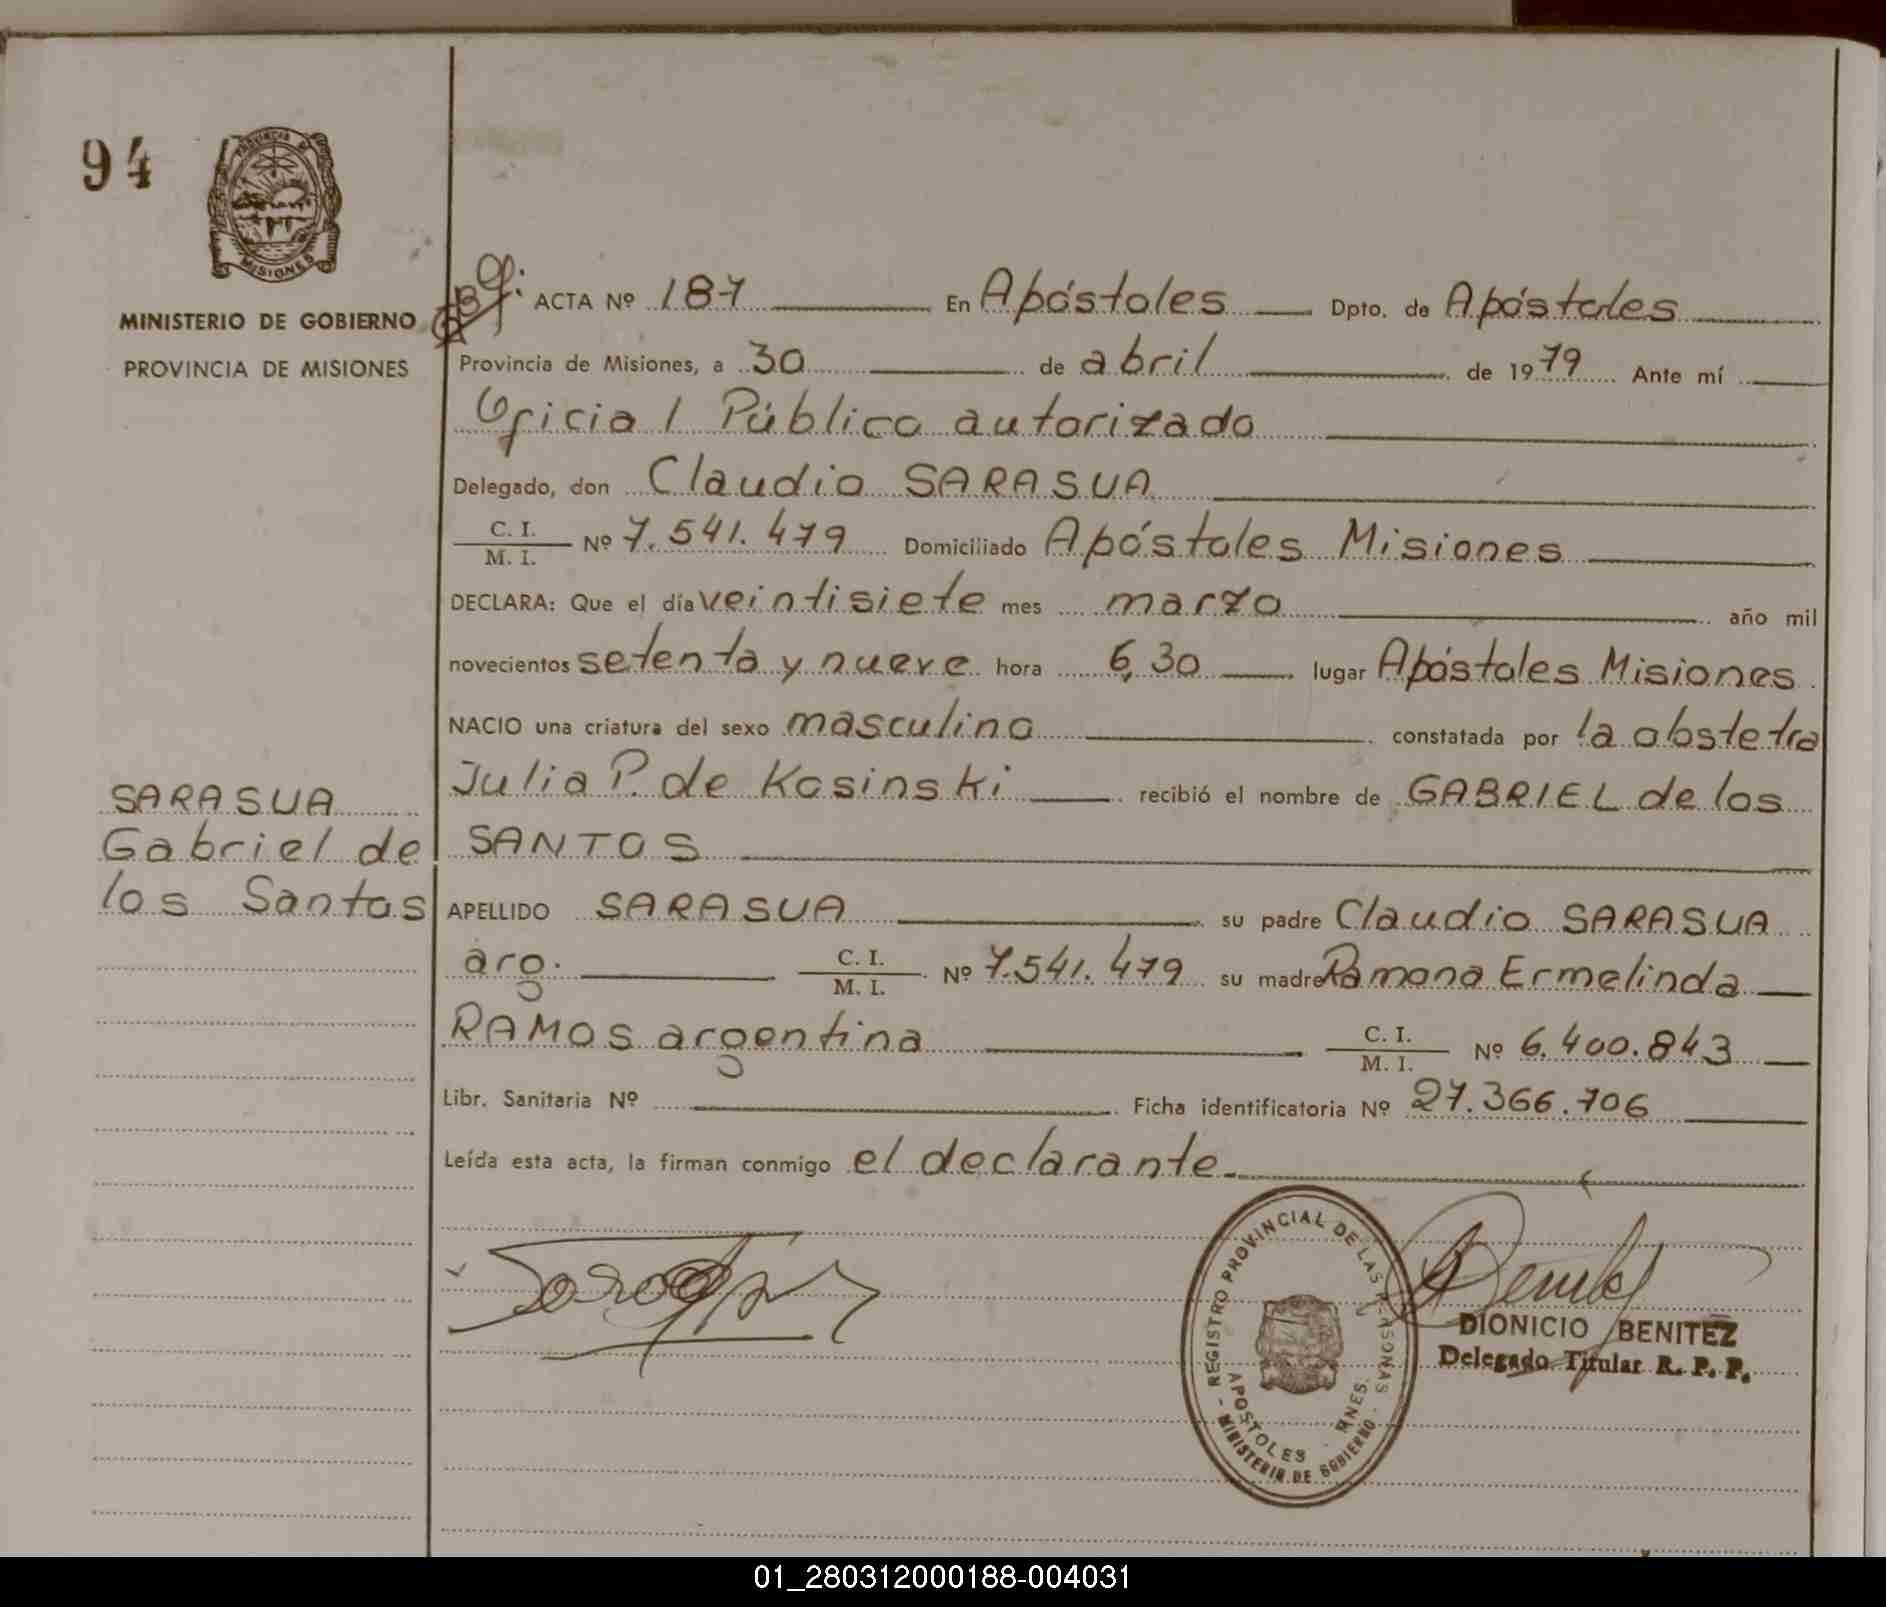 94
PROVINCIA DE
MISIONES
MINISTERIO DE GOBIERNO
PROVINCIA DE MISIONES
ACTA Nº 187 En Apóstoles Dpto. de Apóstoles
Provincia de Misiones, a 30 de abril de 1979 Ante mí
Oficial Público autorizado
Delegado, don Claudio SARASUA
C. I.
M. I. Nº 7.541.479 Domiciliado Apóstoles Misiones
DECLARA: Que el día veintisiete mes marzo año mil
novecientos setenta y nueve hora 6,30 lugar Apóstoles Misiones
NACIO una criatura del sexo masculino constatada por la obstetra
Julia P. de Kosinski recibió el nombre de GABRIEL de los
SANTOS
SARASUA
Gabriel de
los Santos
APELLIDO SARASUA su padre Claudio SARASUA
arg. C. I.
M. I. Nº 7.541.479 su madre Ramona Ermelinda
RAMOS argentina C. I.
M. I. Nº 6.400.843
Libr. Sanitaria Nº Ficha identificatoria Nº 27.366.706
Leída esta acta, la firman conmigo el declarante.
REGISTRO PROVINCIAL DE LAS PERSONAS
APOSTOLES - MNES.
MINISTERIO DE GOBIERNO
DIONICIO BENITEZ
Delegado Titular R. P. P.
01_280312000188-004031